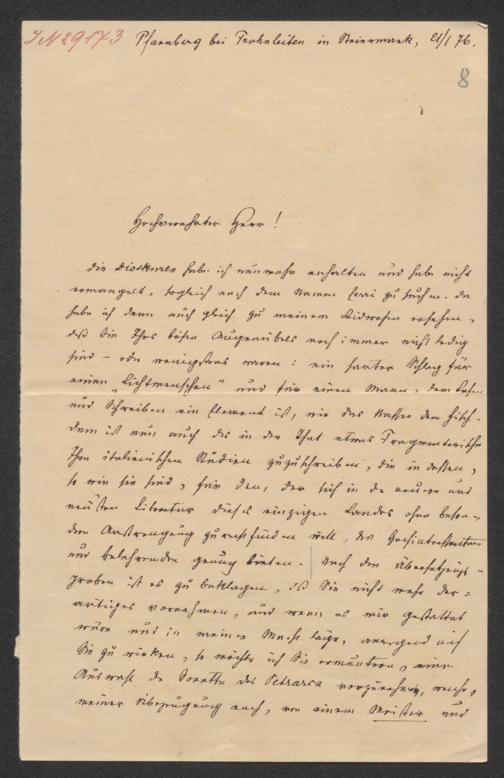 IN 29173 Pfannberg bei Frohnleiten in Steiermark, 21/1 76.
8
Hochverehrter Herr!
Die Dioskuren habe ich nunmehr erhalten und habe nicht
ermangelt, sogleich nach dem Namen Cerri zu suchen. Da
habe ich denn auch gleich zu meinem Leidwesen ersehen,
daß Sie Ihres bösen Augenübels noch immer nicht ledig
sind – oder wenigstens waren: ein harter Schlag für
einen „Lichtmenschen“ und für einen Mann, dem Lesen
und Schreiben ein Element ist, wie das Wasser dem Fisch.
Dem ist nun auch das in der That etwas Fragmentarische
Ihrer italienischen Studien zuzuschreiben, die indessen,
so wie sie sind, für den, der sich in der neueren und
neuesten Literatur dieses einzigen Landes ohne beson-
dere Anstrengung zurechtfinden will, des Hochinteressanten
und Belehrenden genug bieten. Nach den Übersetzungs-
proben ist es zu beklagen, daß Sie nicht mehr der-
artiges vornehmen, und wenn es mir gestattet
wäre und in meiner Macht läge, anregend auf
Sie zu wirken, so möchte ich Sie ermuntern, eine
Auswahl der Sonette des Petrarca vorzunehmen, welche,
meiner Überzeugung nach, von einem Meister und